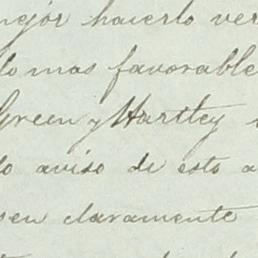 mejor hacerlo ver
lo mas favorable
Green y Hartley
do aviso de esto a
sen claramente